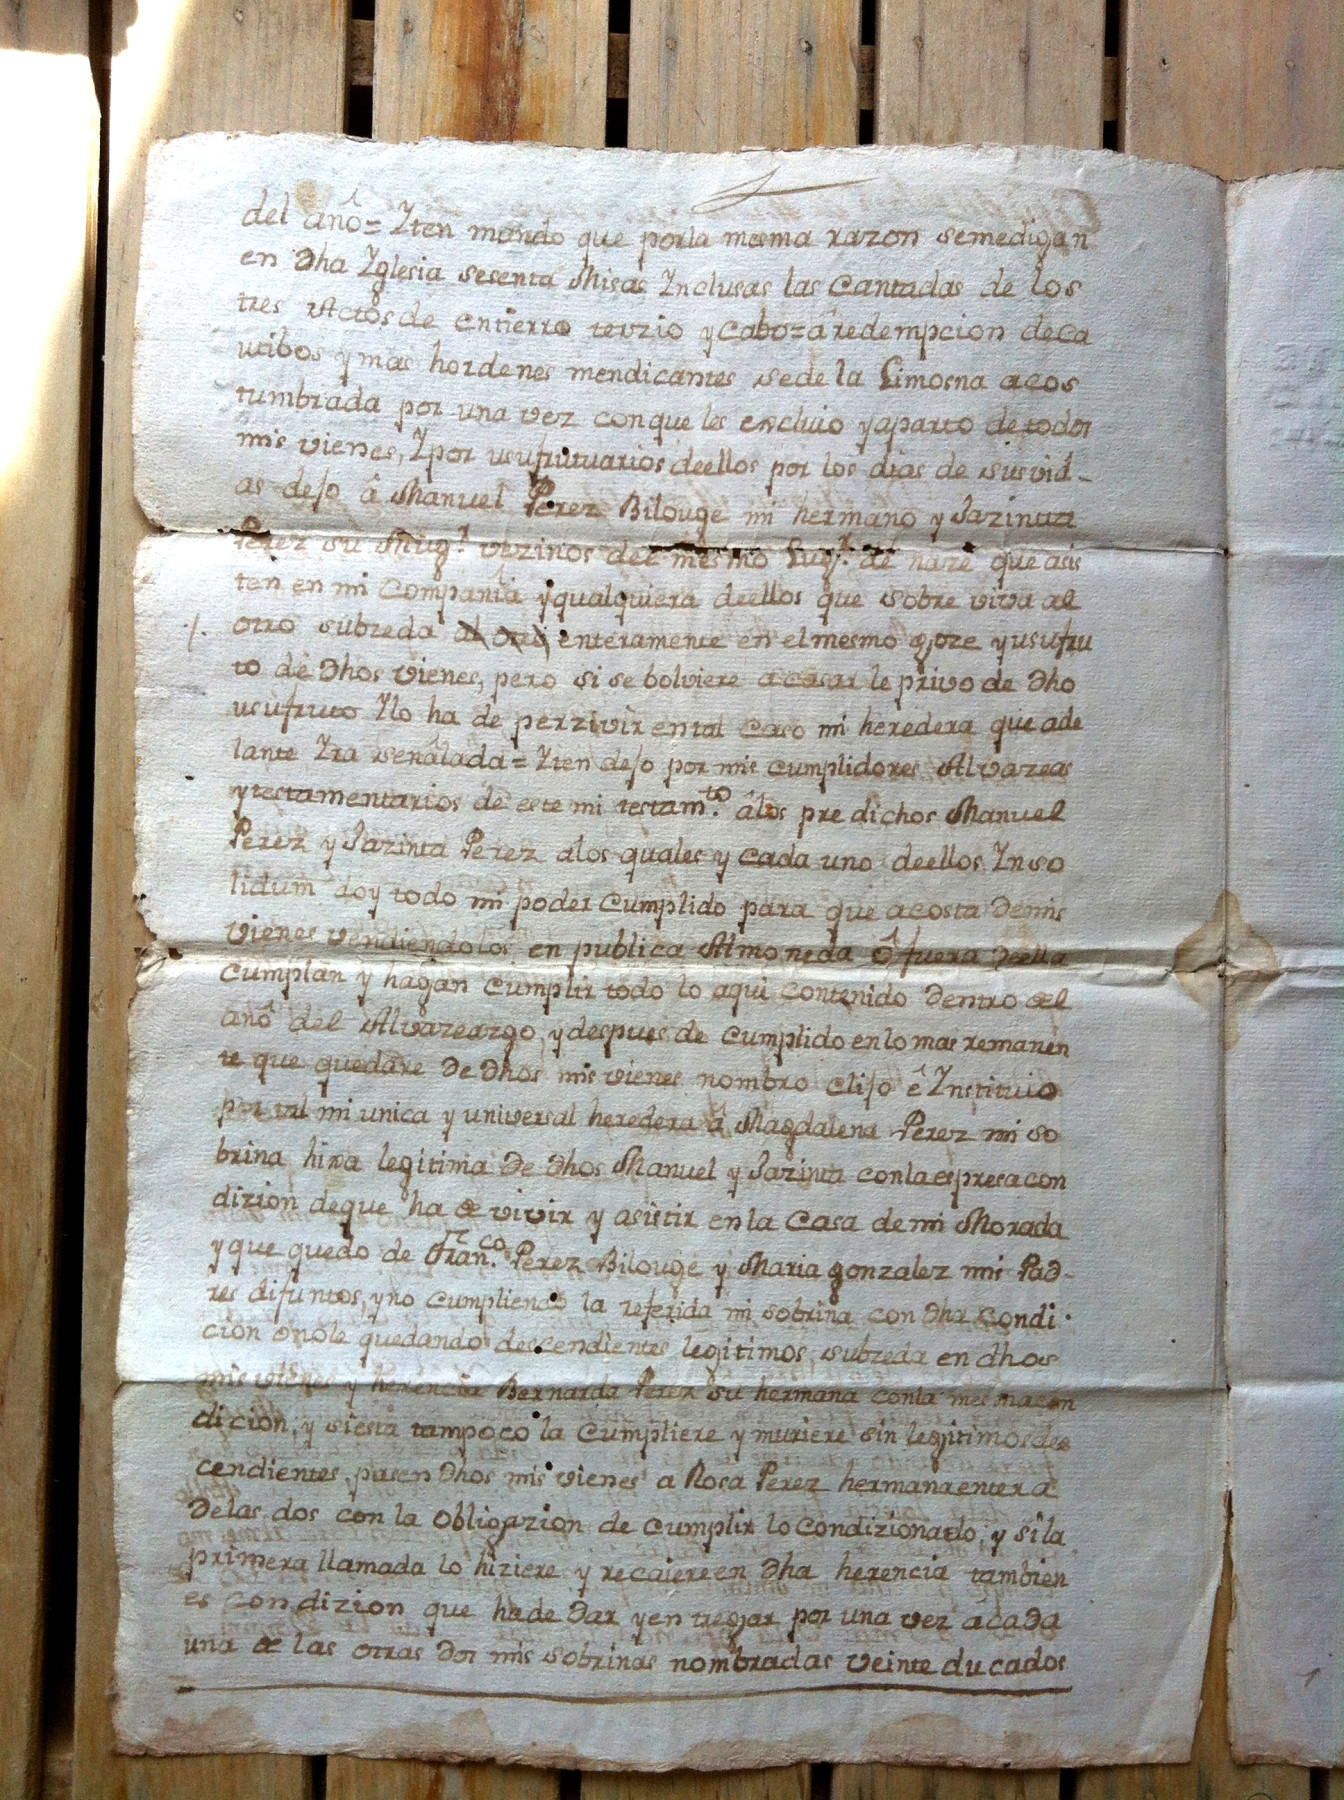 del año = Yten mando que porla mesma razon semedigan
en Dha Yglesia sesenta Misas Ynclusas las Cantadas de los
tres Actos de entierro terzio y Cabo = â redempcion deca
utibos y mas hordenes mendicantes sede la Limosna acos
tumbrada por una vez conque les excluio yaparto de todos
mis vienes, Y por usufrutuarios deellos por los dias de sus vid-
as dejo â Manuel Perez Bilouge mi hermano y Jazinta
Perez su Mug.r vezinos del mesmo Lug.r de que asis
ten en mi Compañia yqualquiera deellos que sobre viva al
otro subzeda al otro enteramente en el mesmo goze y usufru
to de Dhos vienes, pero si se bolviere acasar le privo de Dho
usufruto Ylo ha de perzivir ental caso mi heredera que ade
lante Yra señalada = Yten dejo por mis cumplidores Alvazeas
ytestamentarios de este mi testam.to âlos pre dichos Manuel
Perez y Jazinta Perez alos quales y cada uno deellos Ynso
lidum doy todo mi poder Cumplido para que acosta demis
vienes vendiendolos en publica Almoneda ô fuera deella
cumplan y hagan cumplir todo lo aqui contenido Dentro del
año del Alvazeazgo, y despues de cumplido enlo mas remanen
te que quedare De Dhos mis vienes nombro elijo ê Ynstituio
por tal mi unica y universal heredera â Magdalena Perez mi so
brina hixa legitima De Dhos Manuel y Jazinta conlaespresacon
dizion deque ha de vivir y asistir en la Casa de mi Morada
y que quedo de Fran.co Perez Bilouge y Maria gonzalez mis Pad-
res difuntos, yno cumpliendo la referida mi sobrina con Dha Condi-
cion onole quedando descendientes legitimos, subzeda en dhos
mis vienes y herencia Bernarda Perez su hermana conla mesmacon
dicion, y siesta tampoco la Cumpliere y muriere sin legitimos des
cendientes, pasen Dhos mis vienes a Rosa Perez hermana entera
Delas dos con la obligazion de cumplir lo Condizionado, y si la
primera llamada lo hiziere y recaiere en Dha herencia tambien
es Condizion que ha de Dar y entregar por una vez acada
una de las otras Dos mis sobrinas nombradas veinte ducados